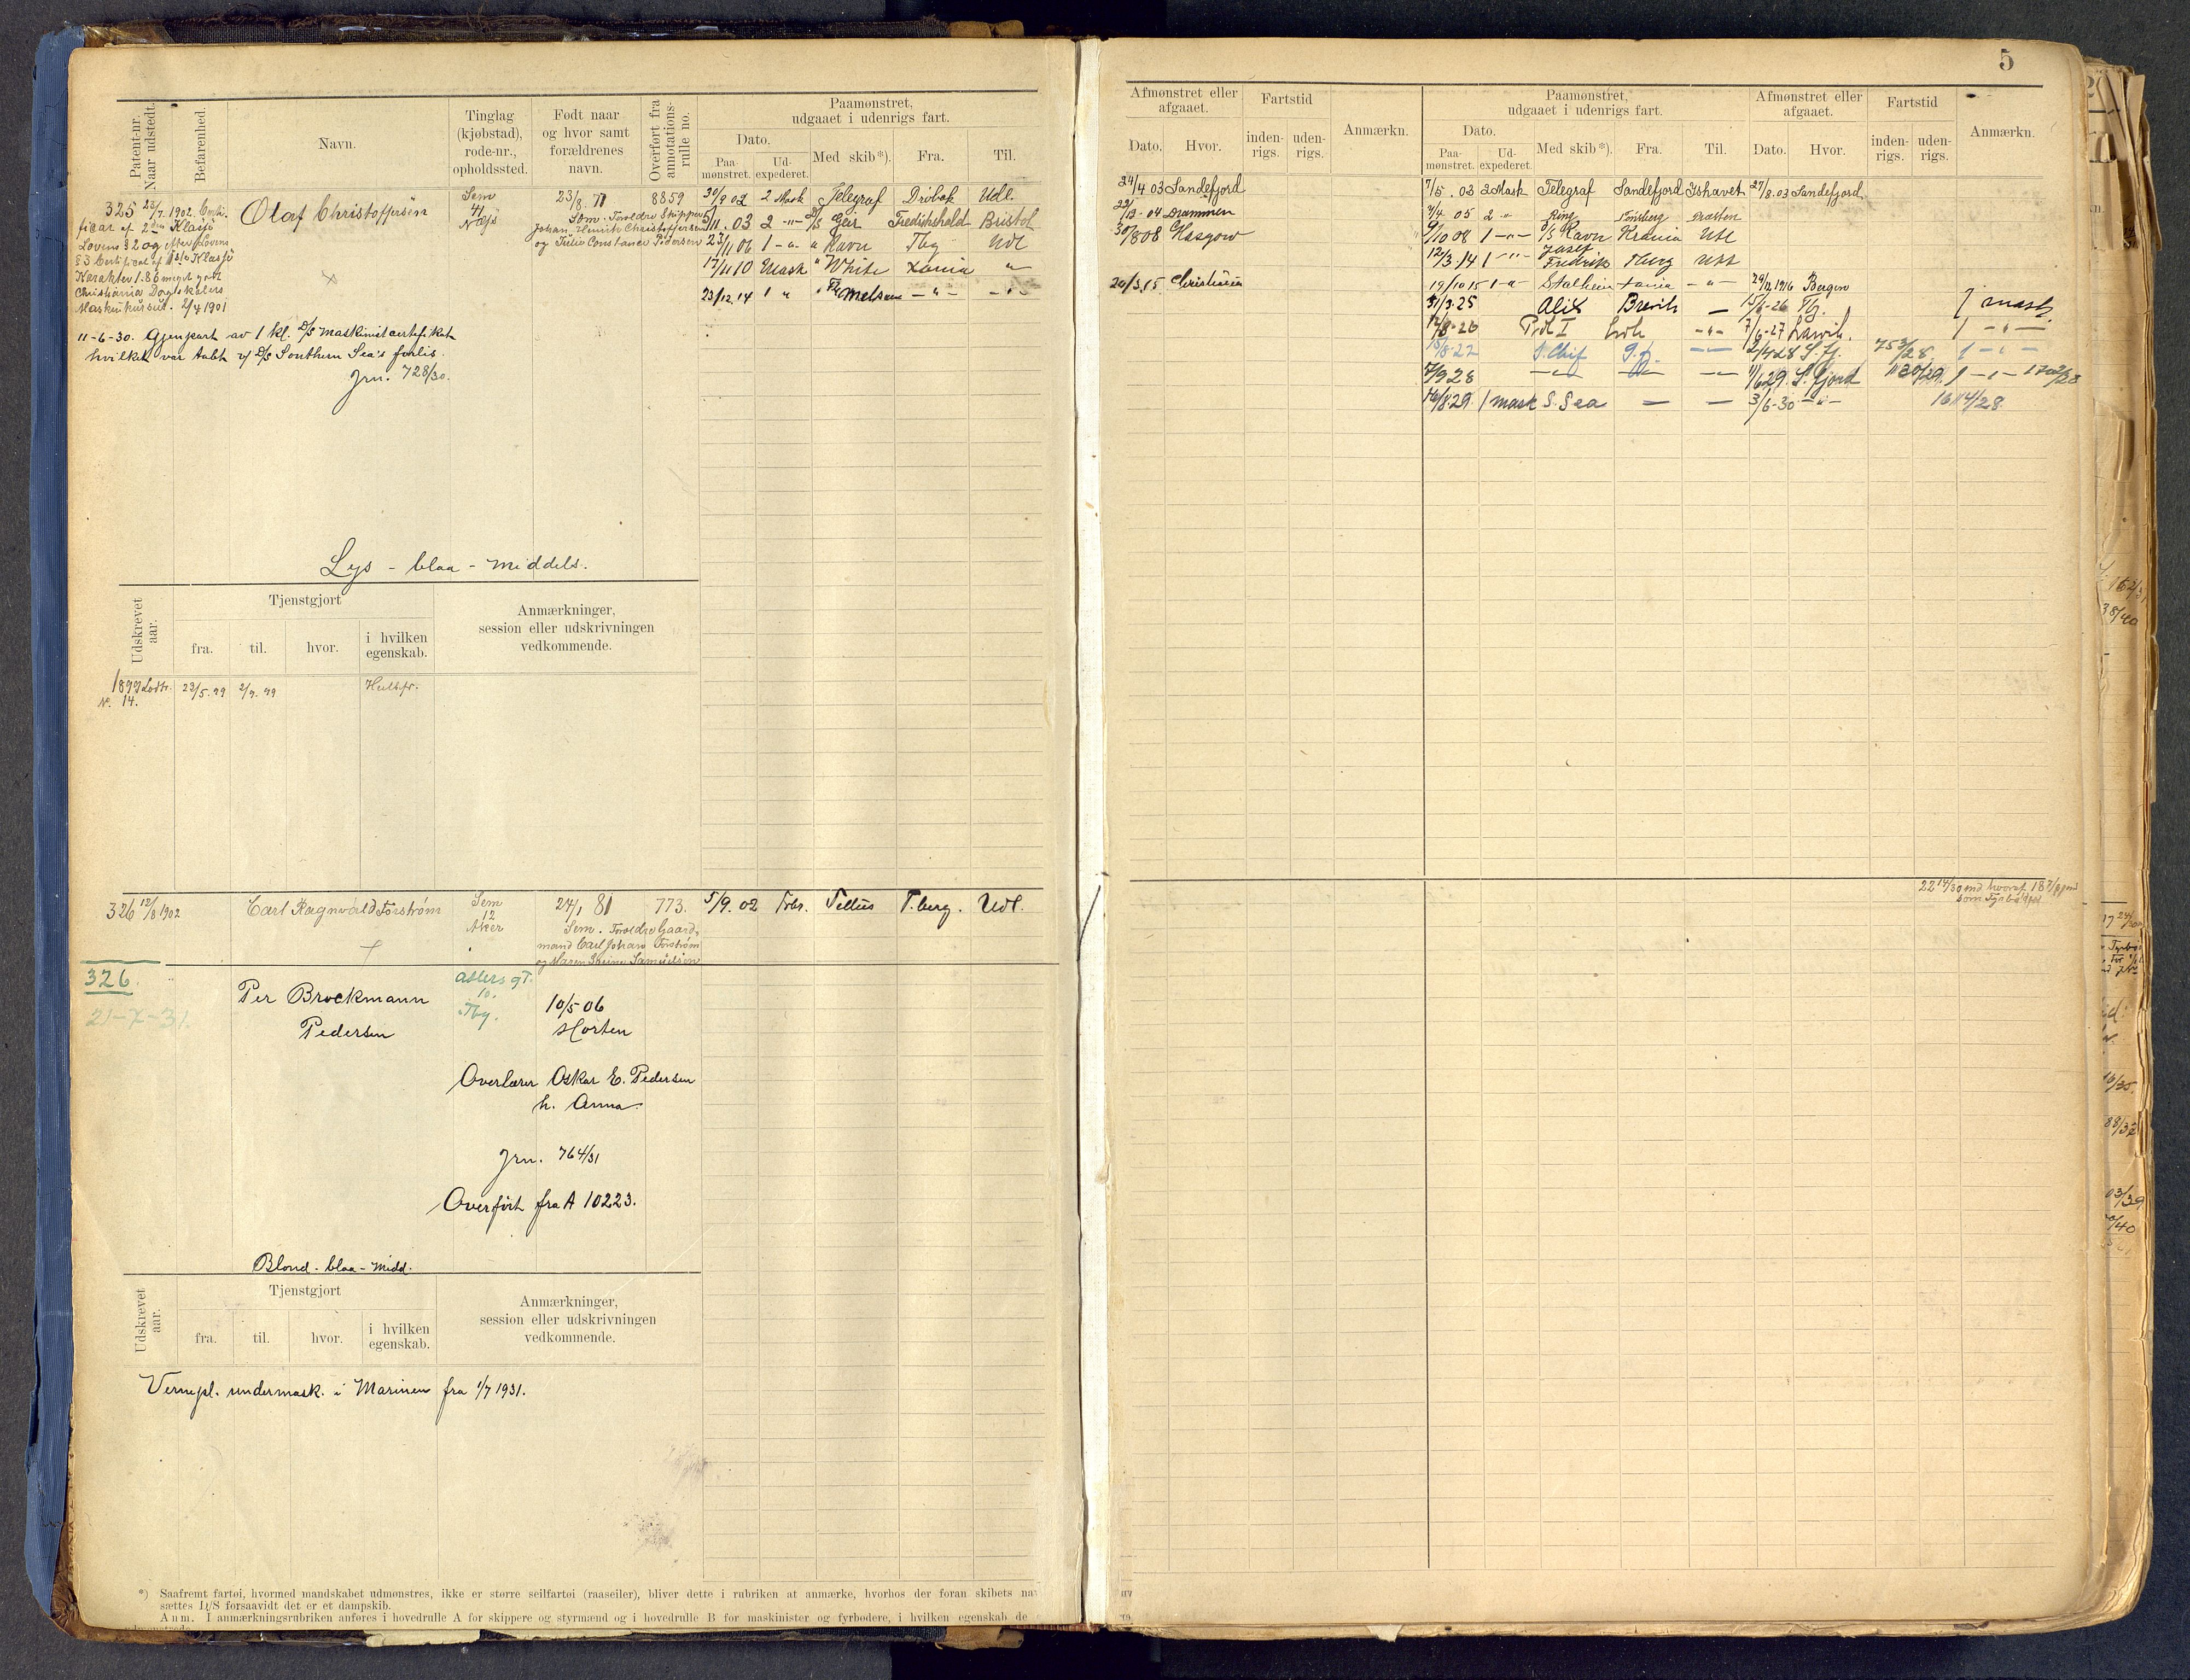 5
Patent-nr.
Naar udstedt.
Befarenhed.
Navn.
Tinglag
(kjøbstad),
rode-nr.,
opholdssted.
Født naar
og hvor samt
forældrenes
navn.
Overført fra
annotations-
rulle no.
Paamønstret,
udgaaet i udenrigs fart.
Dato.
Paa-
mønstret.
Ud-
expederet.
Med skib*).
Fra.
Til.
Afmønstret eller
afgaaet.
Dato.
Hvor.
Fartstid
inden-
rigs.
uden-
rigs.
Anmærkn.
Paamønstret,
udgaaet i udenrigs fart.
Dato.
Paa-
mønstret.
Ud-
expederet.
Med skib*).
Fra.
Til.
Afmønstret eller
afgaaet.
Dato.
Hvor.
Fartstid
inden-
rigs.
uden-
rigs.
Anmærkn.
325 23/7 1902
Olaf Christoffersen
Sem
4/
23/8. 71
Sem. Foreldre Skipper
Johan Henrik Christoffersen
og Julie Constance Pedersen
8859
ficat af 2den Klasse
Lovens § 2 og efter Lovens
§ 3 Certificat af 1ste Klasse
Karakter 1.86 meget godt
Christiania Dagskolers
Maskinkursus. 2/4 1901
11-6-30. Gjenpart av 1 kl. D/S maskinistcertifikat
hvilket var tabt v/ D/S Southern Sea's forlis.
Jrn. 728/30.
30/9 02 2 Mask Telegraf Drøbak Udl.
5/11. 03 2 -"- D/S Geir Fredrikshald Bristol
23/11 06 1 -"- " Ravn Tbg Udl
17/11 10 2 Mask " White Xania "
23/12 14 1 " -"-
24/4 03 Sandefjord
22/12 - 04 Drammen
30/8 08 Glasgow
20/3 15 Christiania
7/5. 03 2 Mask Telegraf Sandefjord Ishavet 27/8. 03 Sandefjord
7/4. 05 2 -"- Ring Tønsberg Præsten
9/10 08 1 -"- D/S Ravn Krania Udl
12/3. 14 1 -"- Josef Fredrik Tberg Udl
19/10 15 1 -"- Stalheim Xania -"- 29/12 1916 Bergen
31/3. 25 Alix Brevik — 15/6-26 Tbg. 1 mask.
17/8-26 Prot I -"- 7/6-27 Larvik. 1 -"-
15/8 27 S. Chif S.fj. -"- 2/4 28 S. fj. 753/28 1 -"-
7/9 28 -"- -"- -"- 11/6 29. S. fjord 1 -"-
16/8 29. 1 mask S. Sea — — 3/6-30 -"- 1614/28.
Lys - blaa - middels.
Udskrevet
aar.
Tjenstgjort
fra.
til.
hvor.
i hvilken
egenskab.
Anmærkninger,
session eller udskrivningen
vedkommende.
1899 Lodtr.
N. 14.
23/5. 99 2/9. 99
326 12/8 1902
Carl Ragnvald Forstrøm
Sem
12
Aker
24/1 81
Sem. Foreldre Gaard-
mand Carl Johan Forstrøm
og Maren Samuelsen
773.
5/9. 02 Fyrb. Tellus T.berg. Udl.
326.
21-7-31.
Per Brockmann
Pedersen
10.
Tbg.
10/5 06
Horten
Overlærer Oskar E. Pedersen
h. Anna
Jrn. 764/31
Overført fra A 10223.
Blond - blaa - midd.
Udskrevet
aar.
Tjenstgjort
fra.
til.
hvor.
i hvilken
egenskab.
Anmærkninger,
session eller udskrivningen
vedkommende.
Vernepl. undermask. i Marinen fra 1/7 1931.
*) Saafremt fartøi, hvormed mandskabet udmønstres, ikke er større seilfartøi (raaseiler), bliver dette i rubriken at anmærke, hvorhos der foran skibets
sættes D/S forsaavidt det er et dampskib.
Anm. I anmærkningsrubriken anføres i hovedrulle A for skippere og styrmænd og i hovedrulle B for maskinister og fyrbødere, i hvilken egenskab de